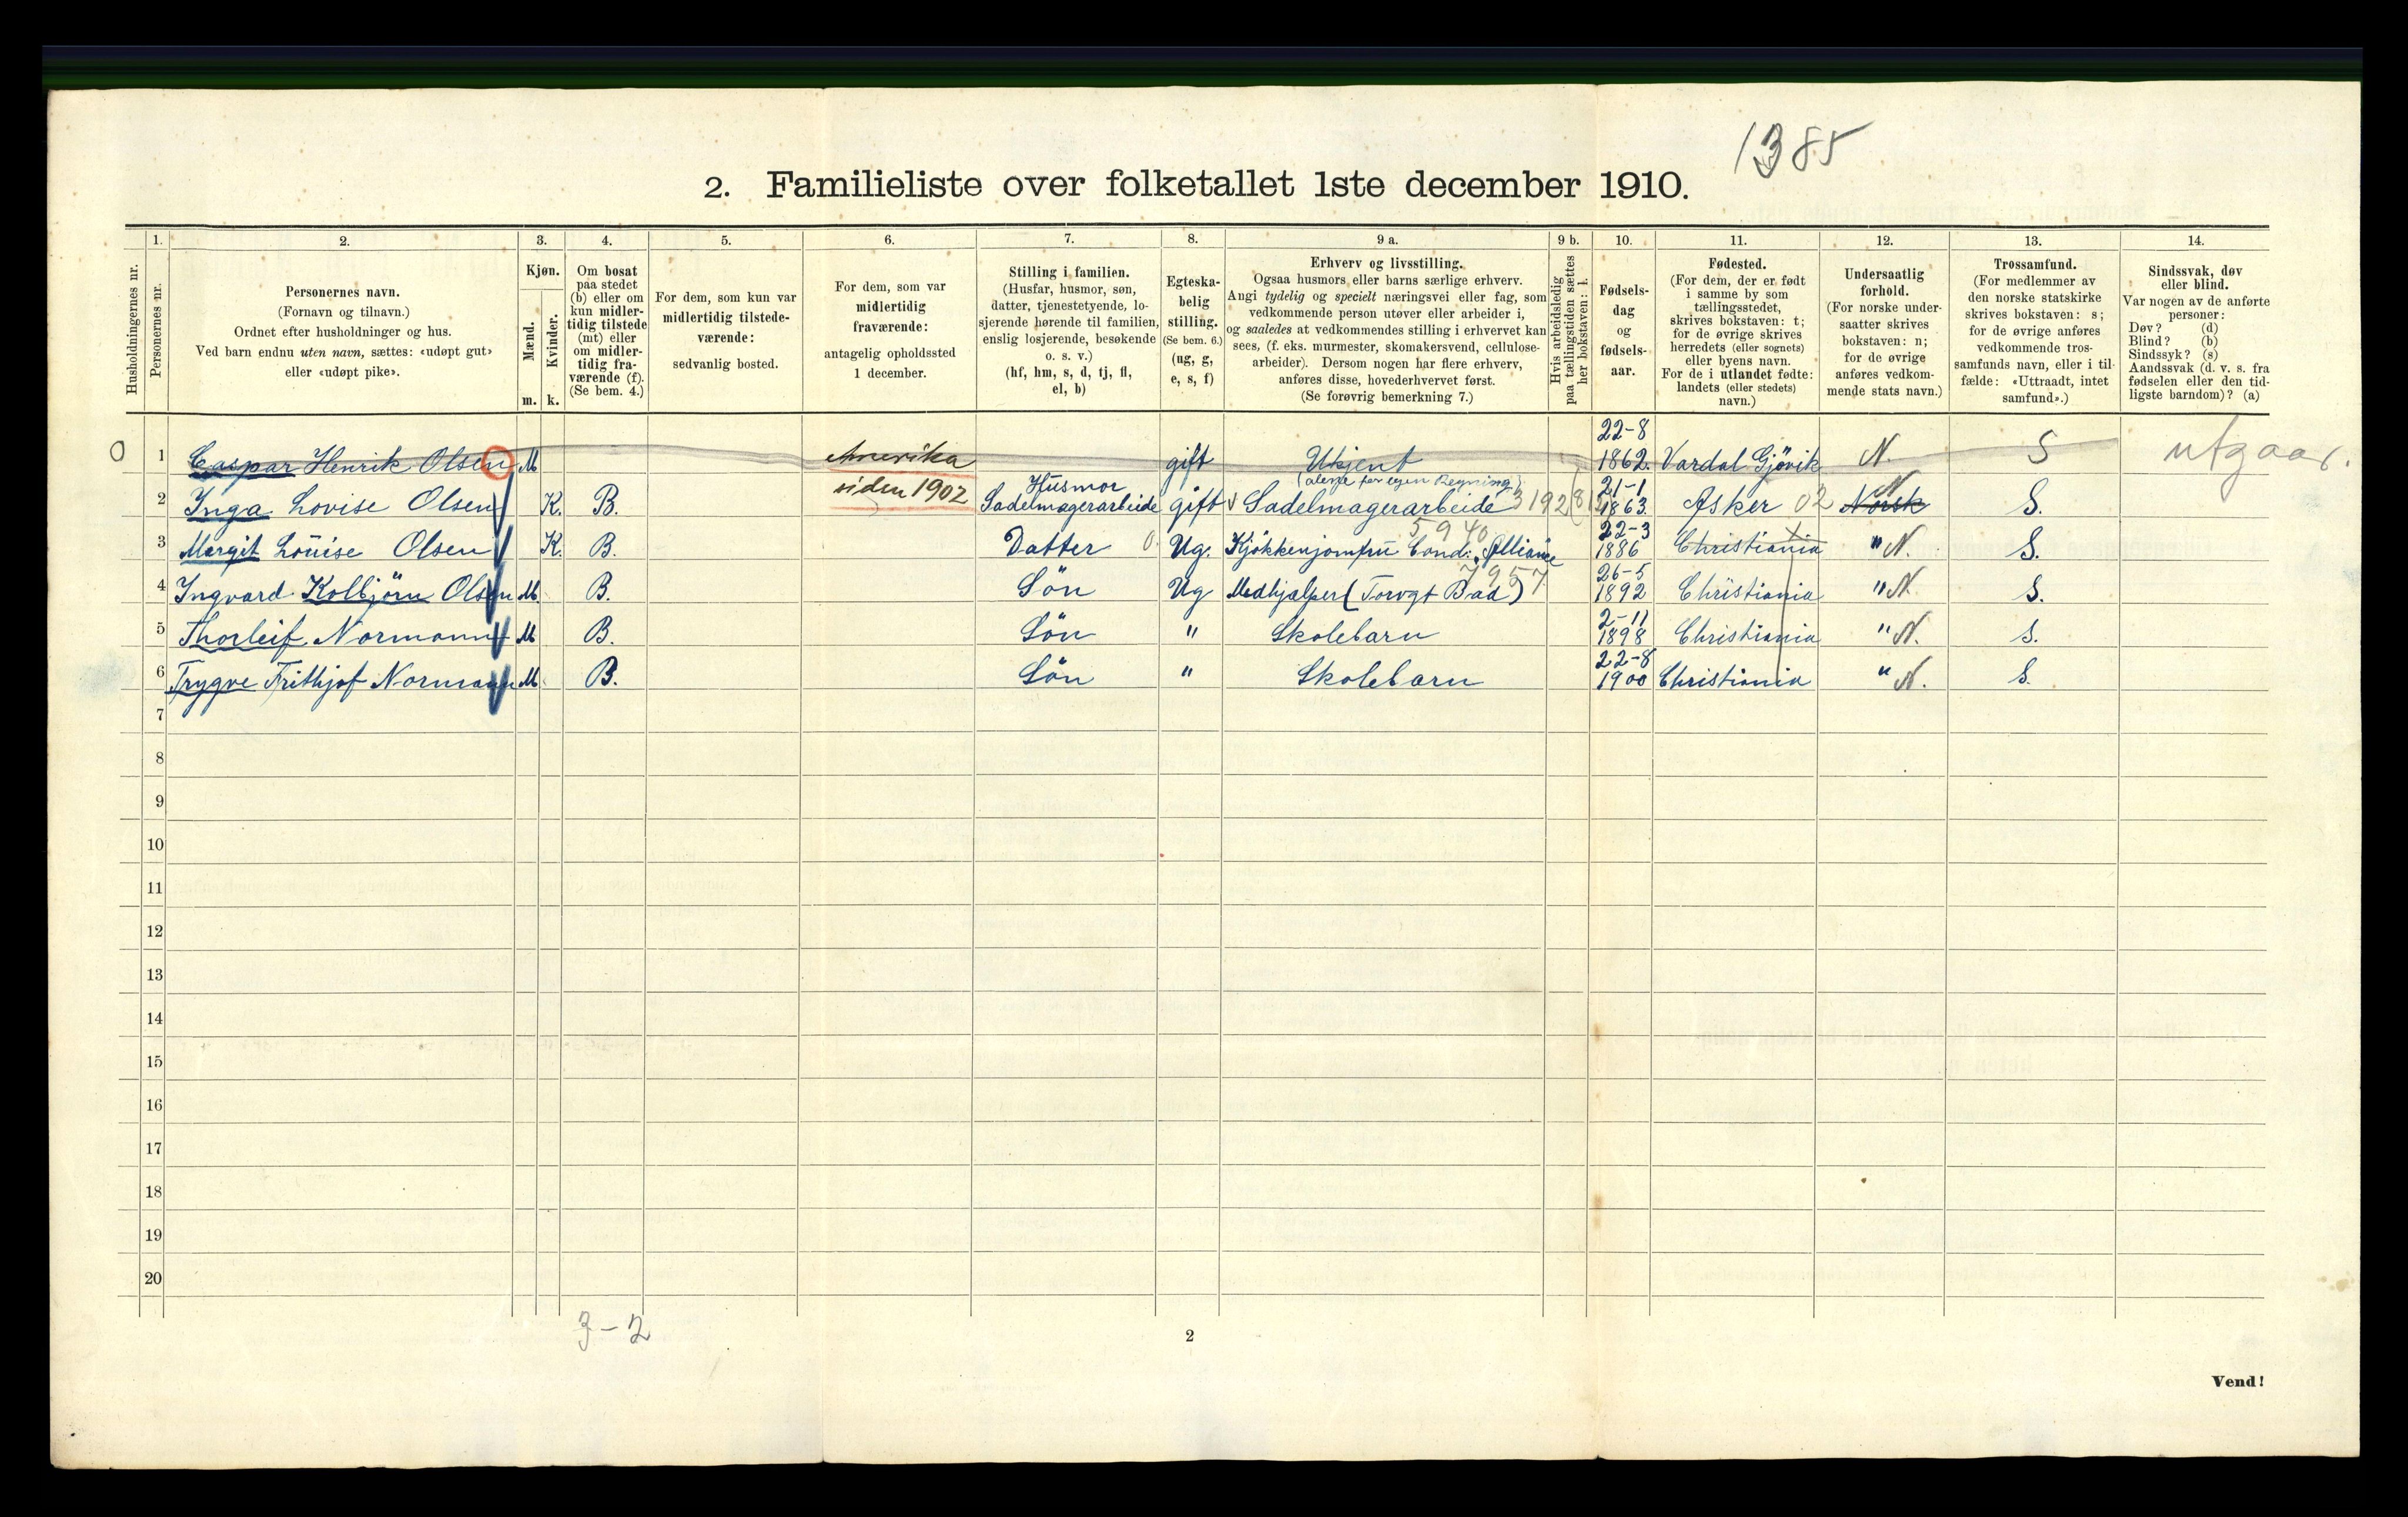 1385
2. Familieliste over folketallet 1ste december 1910.
Husholdningernes nr.
1. Personernes nr.
2.
Personernes navn.
(Fornavn og tilnavn.)
Ordnet efter husholdninger og hus.
Ved barn endnu uten navn, sættes: «udøpt gut»
eller «udøpt pike».
3.
Kjøn.
Mænd.
Kvinder.
m. k.
4.
Om bosat
paa stedet
(b) eller om
kun midler-
tidig tilstede
(mt) eller
om midler-
tidig fra-
værende (f).
(Se bem. 4.)
5.
For dem, som kun var
midlertidig tilstede-
værende:
sedvanlig bosted.
6.
For dem, som var
midlertidig
fraværende:
antagelig opholdssted
1 december.
7.
Stilling i familien.
(Husfar, husmor, søn,
datter, tjenestetyende, lo-
sjerende hørende til familien,
enslig losjerende, besøkende
o. s. v.)
(hf, hm, s, d, tj, fl,
el, b)
8.
Egteska-
belig
stilling.
(Se bem. 6.)
(ug, g,
e, s, f)
9 a.
Erhverv og livsstilling.
Ogsaa husmors eller barns særlige erhverv.
Angi tydelig og specielt næringsvei eller fag, som
vedkommende person utøver eller arbeider i,
og saaledes at vedkommendes stilling i erhvervet kan
sees, (f. eks. murmester, skomakersvend, cellulose-
arbeider). Dersom nogen har flere erhverv,
anføres disse, hovederhvervet først.
(Se forøvrig bemerkning 7.)
9 b.
Hvis arbeidsledig
paa tællingstiden sættes
her bokstaven: l.
10.
Fødsels-
dag
og
fødsels-
aar.
11.
Fødested.
(For dem, der er født
i samme by som
tællingsstedet,
skrives bokstaven: t;
for de øvrige skrives
herredets (eller sognets)
eller byens navn.
For de i utlandet fødte:
landets (eller stedets)
navn.)
12.
Undersaatlig
forhold.
(For norske under-
saatter skrives
bokstaven: n;
for de øvrige
anføres vedkom-
mende stats navn.)
13.
Trossamfund.
(For medlemmer av
den norske statskirke
skrives bokstaven: s;
for de øvrige anføres
vedkommende tros-
samfunds navn, eller i til-
fælde: «Uttraadt, intet
samfund».)
14.
Sindssvak, døv
eller blind.
Var nogen av de anførte
personer:
Døv? (d)
Blind? (b)
Sindssyk? (s)
Aandssvak (d. v. s. fra
fødselen eller den tid-
ligste barndom)? (a)
0 1 Caspar Henrik Olsen M Amerika gift Ukjent 22-8 1862. Vardal Gjövik N. S utgaar.
2 Inga Lovise Olsen K. B. siden 1902 Husmor Sadelmagerarbeide gift Sadelmagerarbeide (alene for egen Regning) 3192 21-1 1863 Asker 02 Norsk N S.
3 Margit Louise Olsen K. B. Datter 0 Ug. Kjökkenjomfru Cond: Alliance 5940 22-3 1886 Christiania " N. S.
4 Ingvard Kolbjörn Olsen M. B. Sön Ug Medhjælper (Torvgt Bad) 7957 26-5 1892 Christiania " N. S.
5 Thorleif Normann M B. Sön " Skolebarn 2-11 1898 Christiania " N. S.
6 Trygve Frithjof Normann M. B. Sön " Skolebarn 22-8 1900 Christiania " N. S.
7
8
9
10
11
12
13
14
15
16
17
18
19
20
3-2
2
Vend!